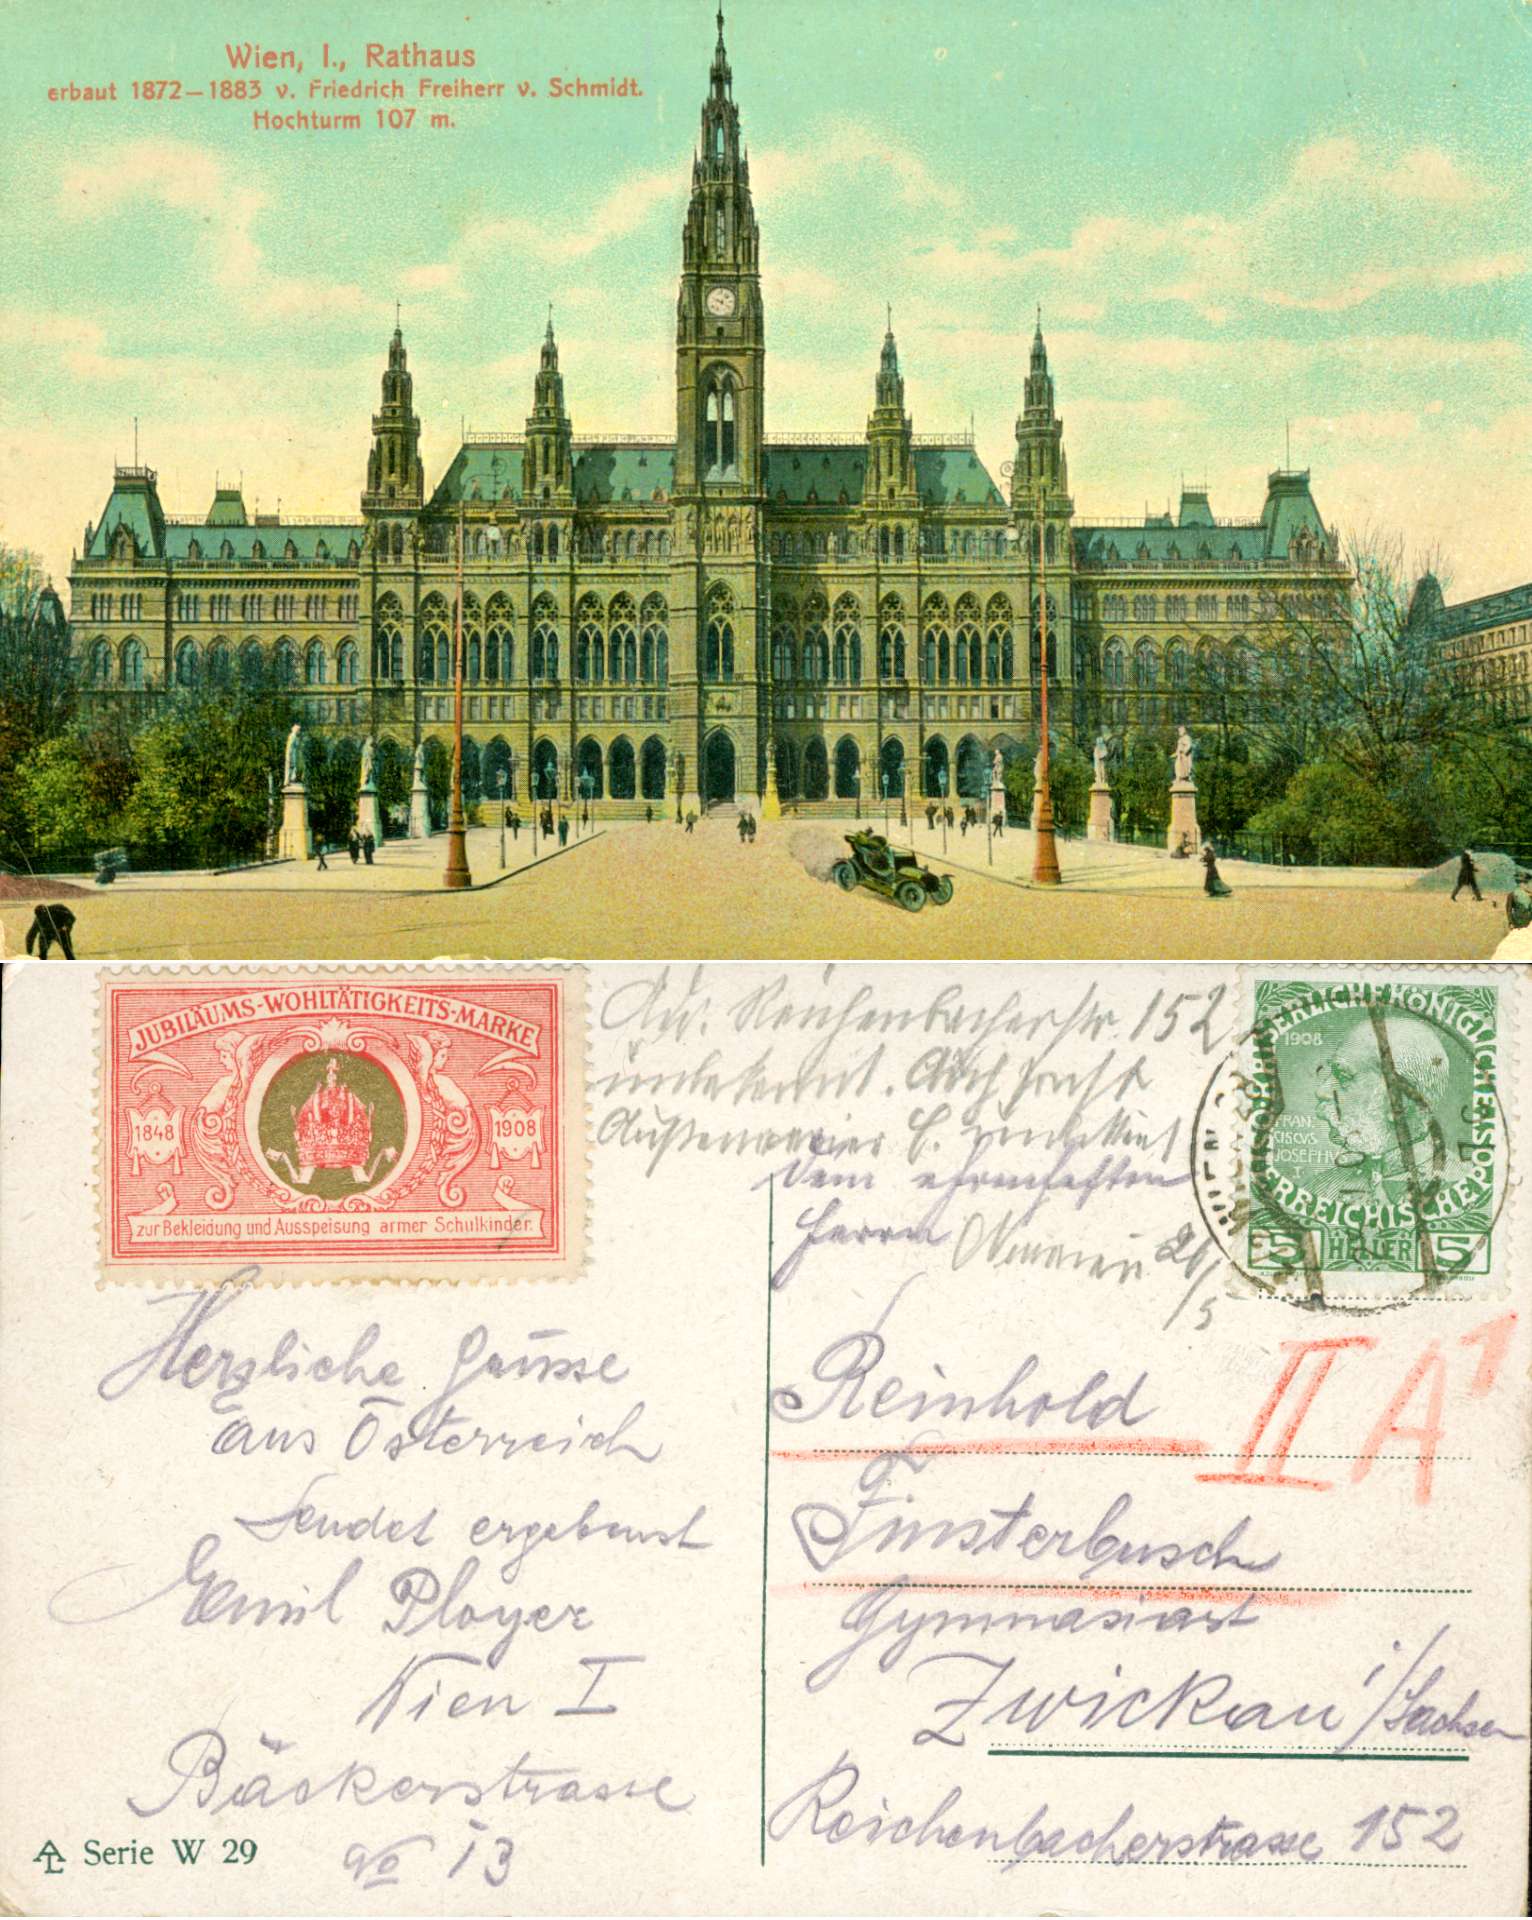 Wien, I., Rathaus
erbaut 1872—1883 v. Friedrich Freiherr v. Schmidt.
Hochturm 107 m.
JUBILÄUMS-WOHLTÄTIGKEITS-MARKE
1848
1908
zur Bekleidung und Ausspeisung armer Schulkinder.
Reichenbacherstr. 152
unbekannt. Auch sonst
KAISERLICHE KÖNIGLICHE ÖSTERREICHISCHE POST
1908
FRAN
CISCVS
JOSEPHVS
I.
5 HELLER 5
WIEN
Dem ehrenhaften
Herrn
26/5
Herzliche Grüsse
aus Österreich
Sendet ergebenst
Emil Ployer
Wien I
Bäckerstrasse
No 13
Reinhold
II A 1
Finsterbusch
Gymnasiast
Zwickau i/Sachsen
Reichenbacherstrasse 152
Serie W 29